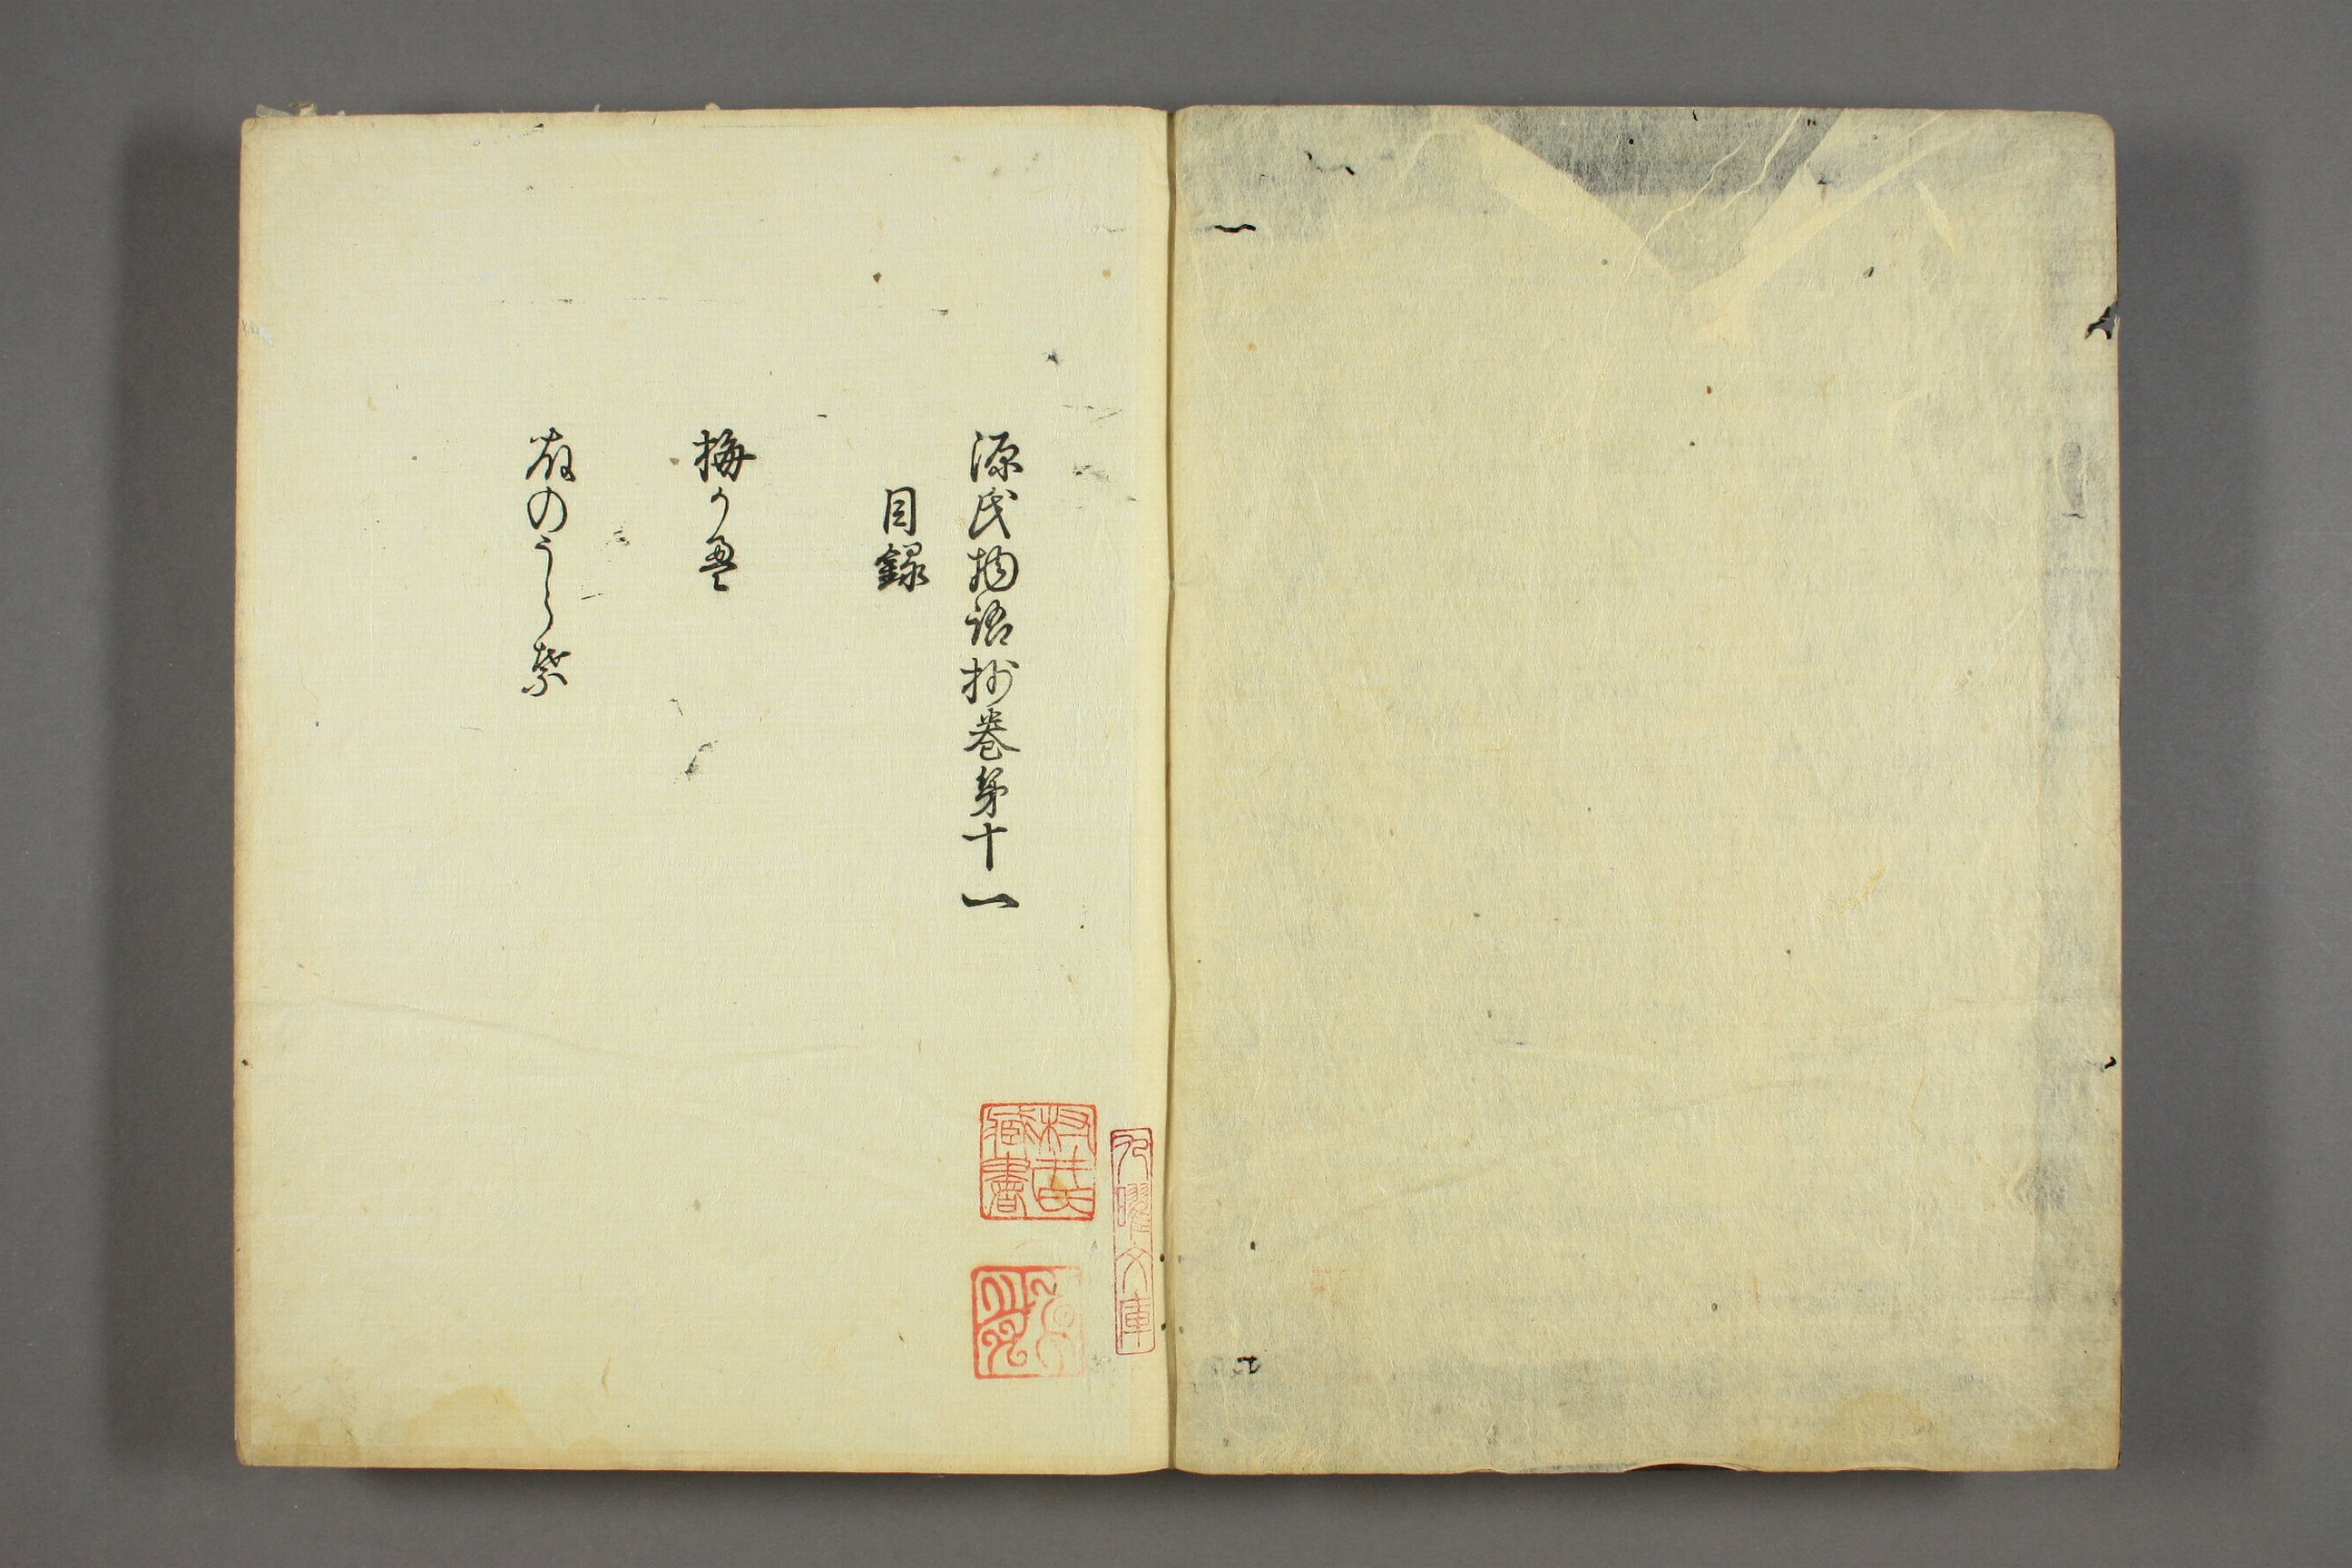 源氏物語抄巻第十一
目録
梅かえ
藤のうら葉
九曜文庫